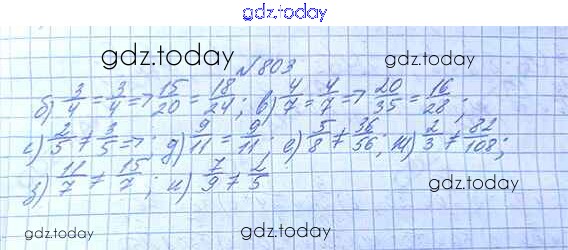 gdz.today
gdz.today gdz.today
№ 803
б) 3/4 = 3/4 => 15/20 = 18/24; в) 4/7 = 4/7 => 20/35 = 16/28;
г) 2/5 ≠ 3/5 =>; д) 9/11 = 9/11; е) 5/8 ≠ 36/56; ж) 2/3 ≠ 82/108;
з) 11/7 ≠ 15/7; и) 7/9 ≠ 2/5
gdz.today
gdz.today gdz.today